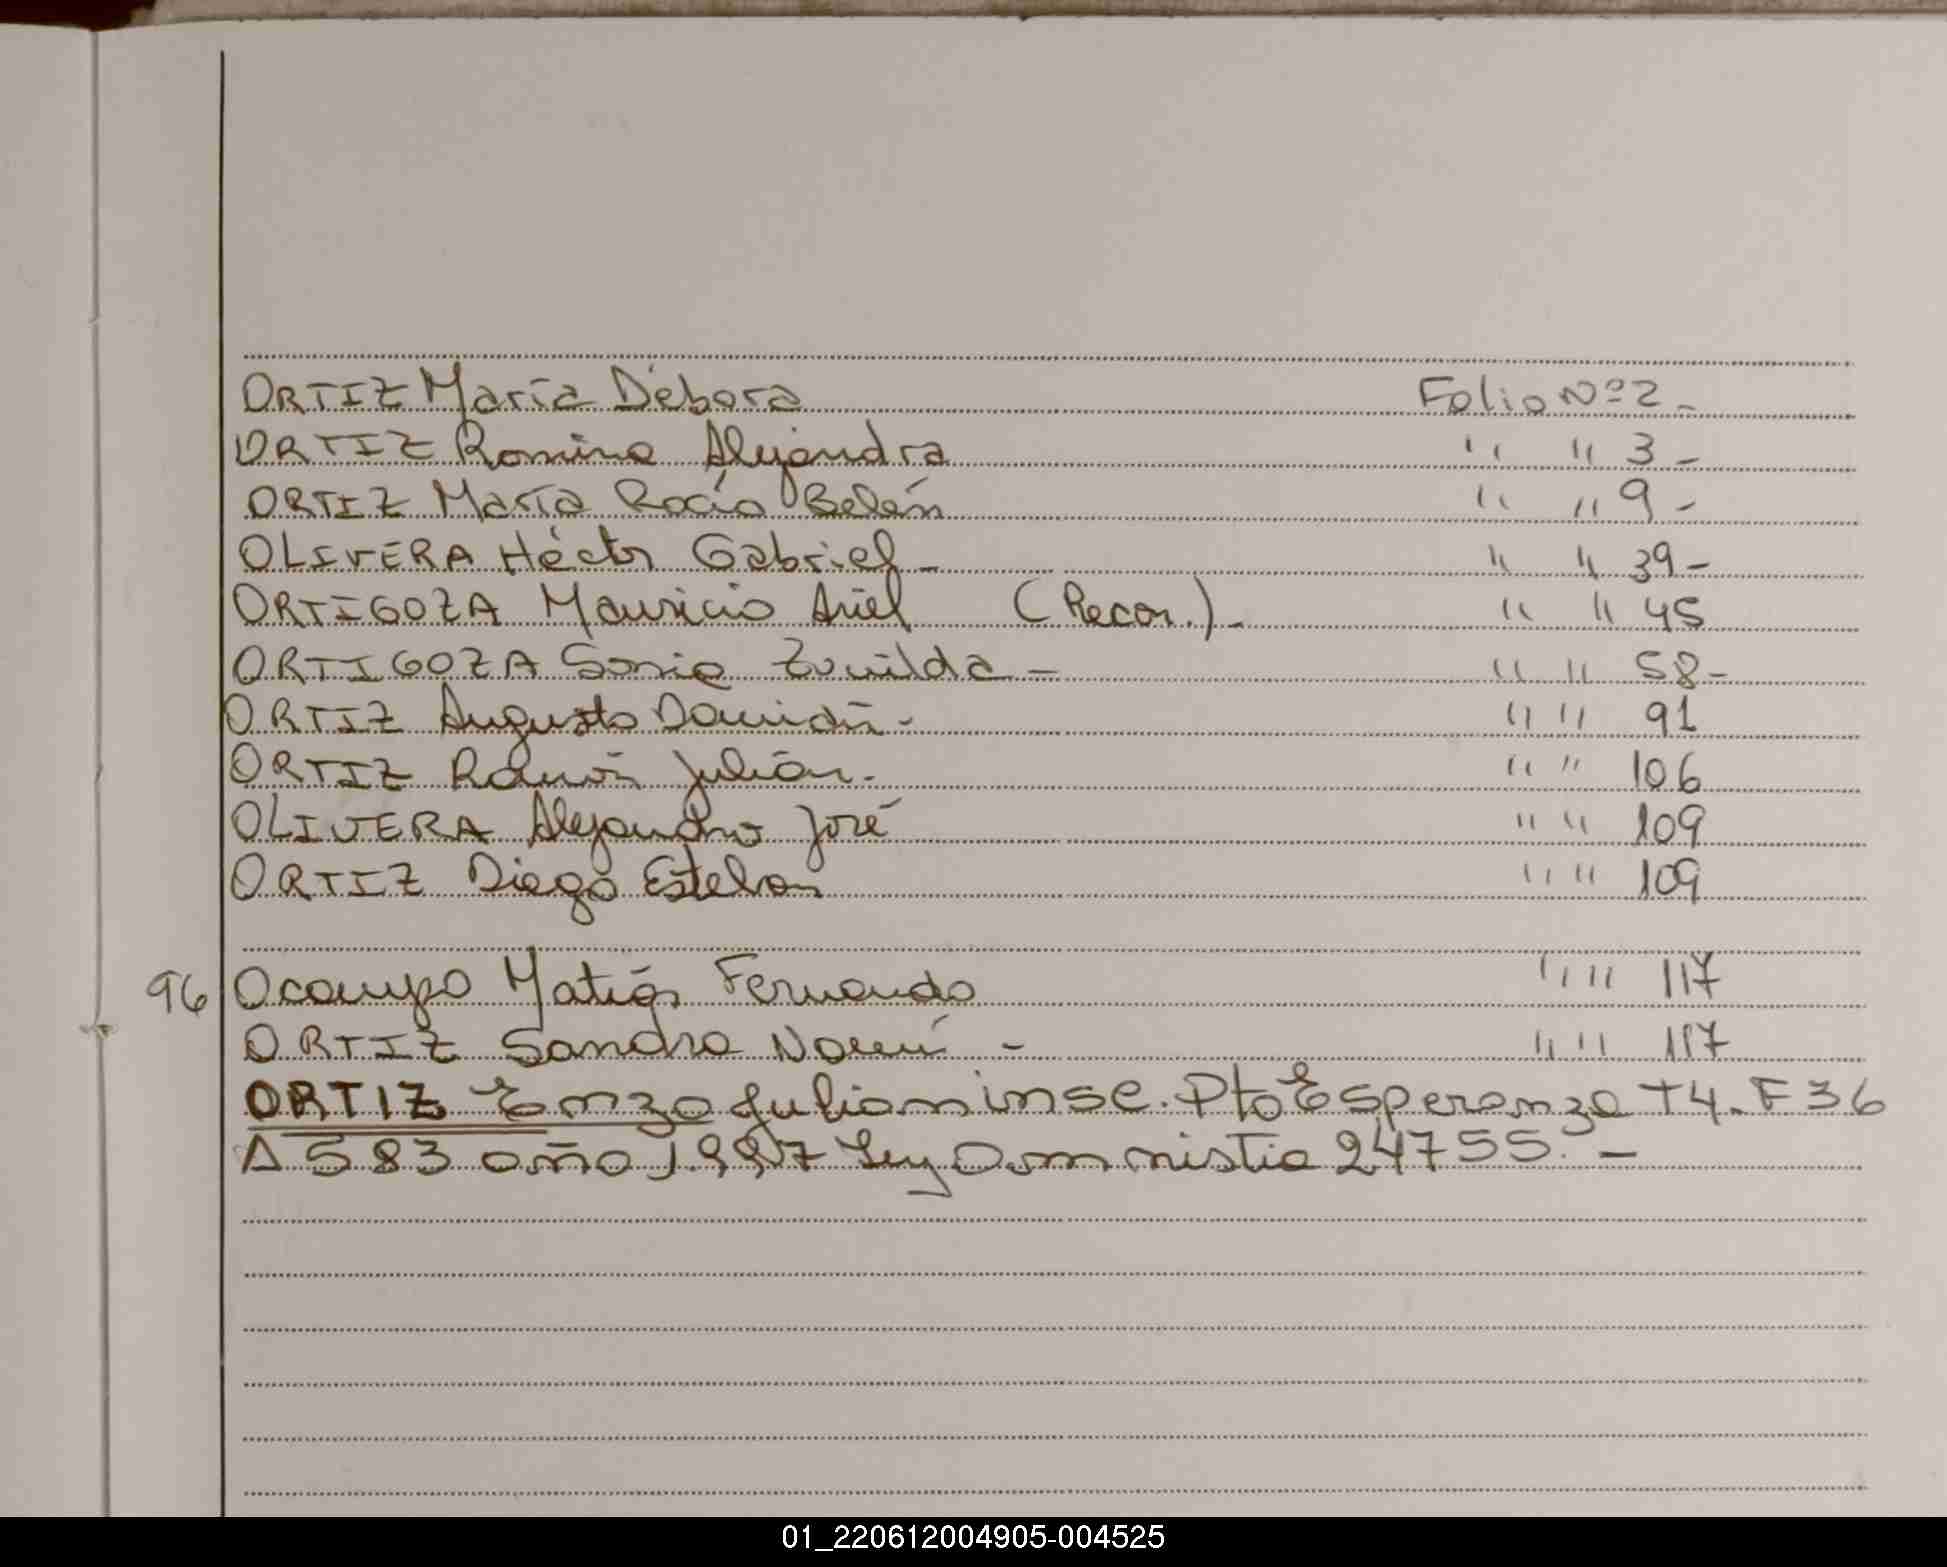 ORTIZ María Débora Folio Nº 2 -
ORTIZ Romina Alejandra " " 3 -
ORTIZ María Rocío Belén " " 9 -
OLIVERA Héctor Gabriel - " " 39 -
ORTIGOZA Mauricio Ariel (Recon.) - " " 45
ORTIGOZA Sonia Zunilda - " " 58 -
ORTIZ Augusto Damián - " " 91
ORTIZ Ramón Julián - " " 106
OLIVERA Alejandro José " " 109
ORTIZ Diego Esteban " " 109
96 Ocampo Matías Fernando " " 117
ORTIZ Sandra Noemí - " " 117
ORTIZ Enzo Julian insc. Pto Esperanza T4. F 36
A 583 año 1.997 Ley Amnistia 24755. -
01_220612004905-004525